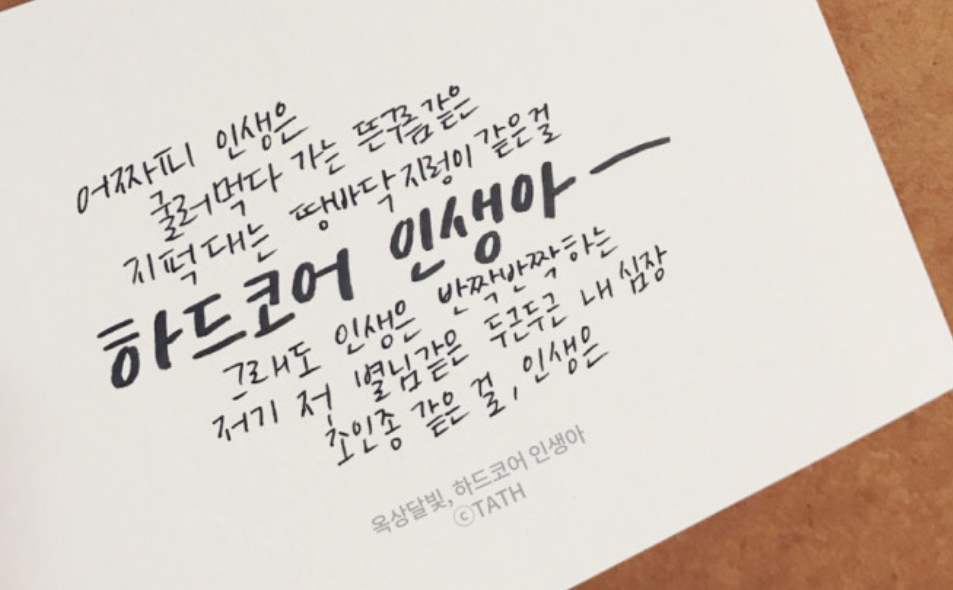 어짜피 인생은
굴러먹다 가는 뜬구름같은
지퍽대는 땅바닥 지렁이 같은걸
하드코어 인생아 —
그래도 인생은 반짝반짝하는
저기 저 별님같은 두근두근 내 심장
초인종 같은 걸, 인생은
옥상달빛, 하드코어 인생아
ⓒTATH